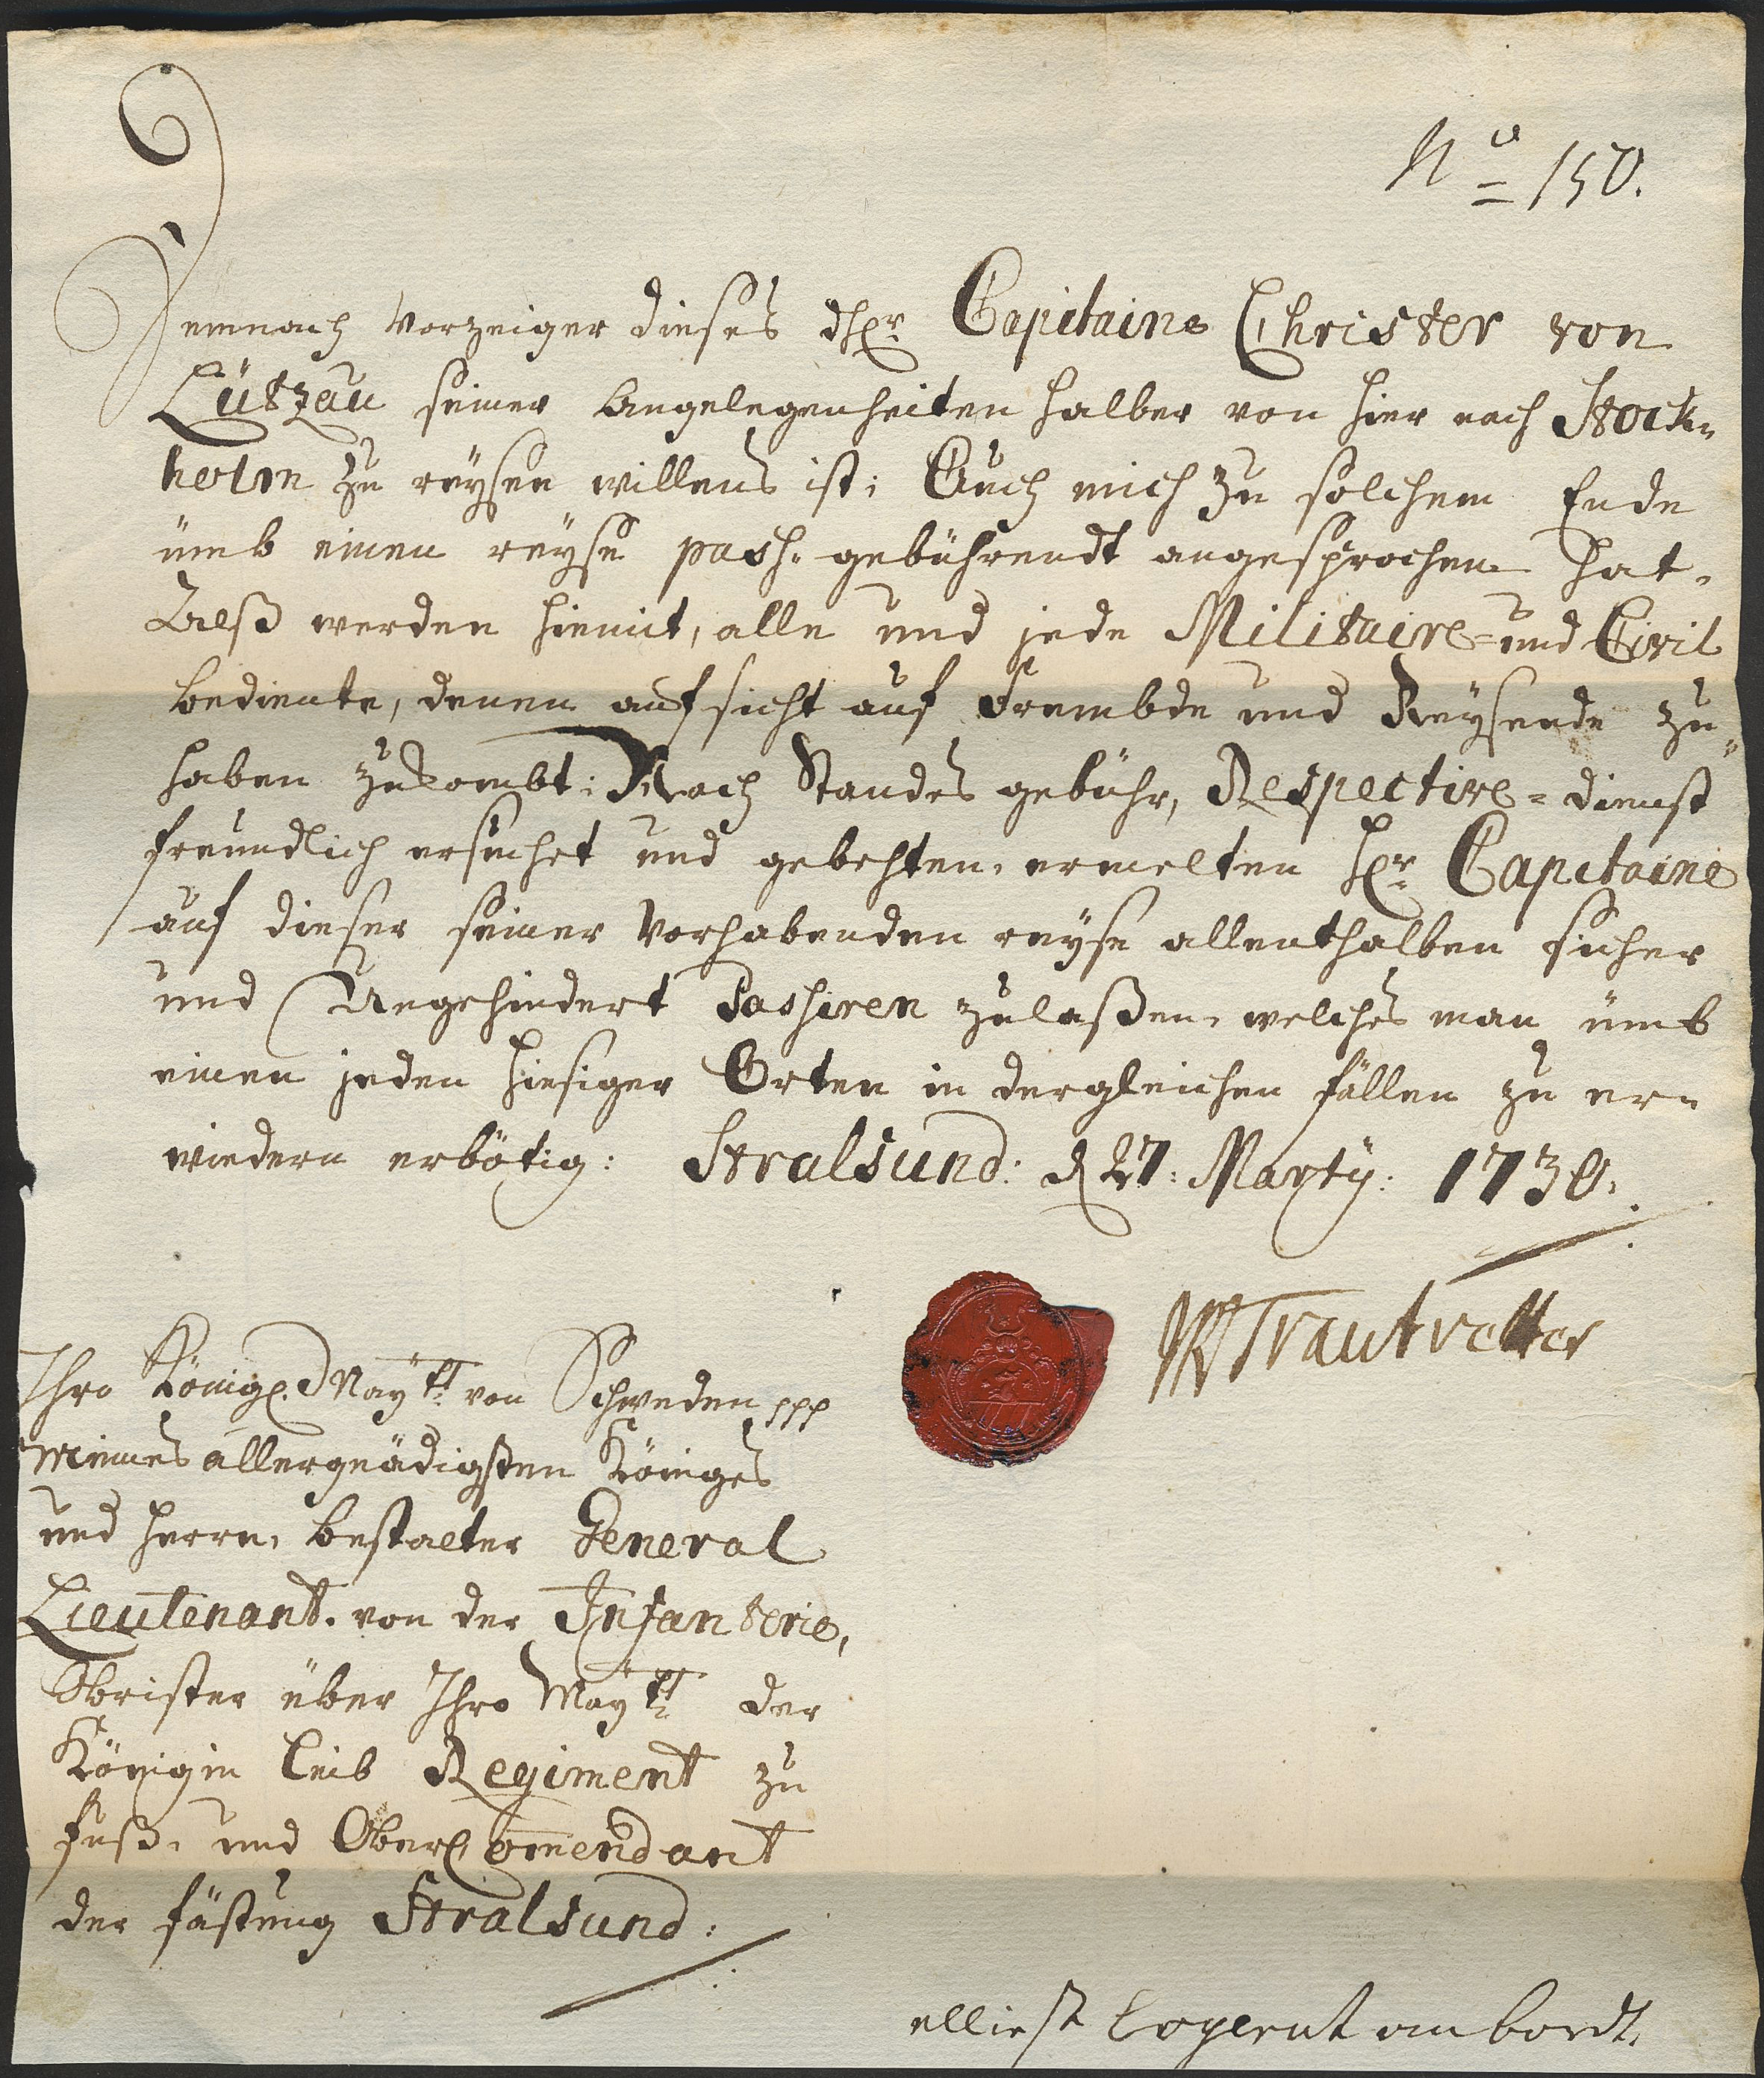 No 150.
Demnach Vorzeiger dieses d Hr. Capitaine Christer von
Lützau seiner Angelegenheiten halber von hier nach Stock-
holm zu reysen willens ist; Auch mich zu solchem Ende
ümb einen reyse pass gebührendt angesprochen hat,
Alß werden hiemit, alle und jede Militaire- und Civil
bediente, denen auffsicht auf Frembde und Reysende zu
haben zukombt; Nach Standes gebühr, Respective- dienst
freundlich ersuchet und gebehten, ermelten Hr. Capitaine
auf dieser seiner Vorhabenden reyse allenthalben sicher
und Ungehindert Passiren zulaßen, welches man ümb
einen jeden hiesiger Orten in dergleichen fällen zu er-
wiedern erbötig: Stralsund: d 27: Marty: 1730.
Trautvetter
Ihro Königl. Mäytt. von Schweden ppp
Meines allergnädigsten Königes
und Herrn, bestalter General
Lieutenant, von der Infanterie,
Obrister über Ihro Mäytt. der
Königin Leib Regiment zu
fuß, und OberComendant
der fästung Stralsund:
an bordt.